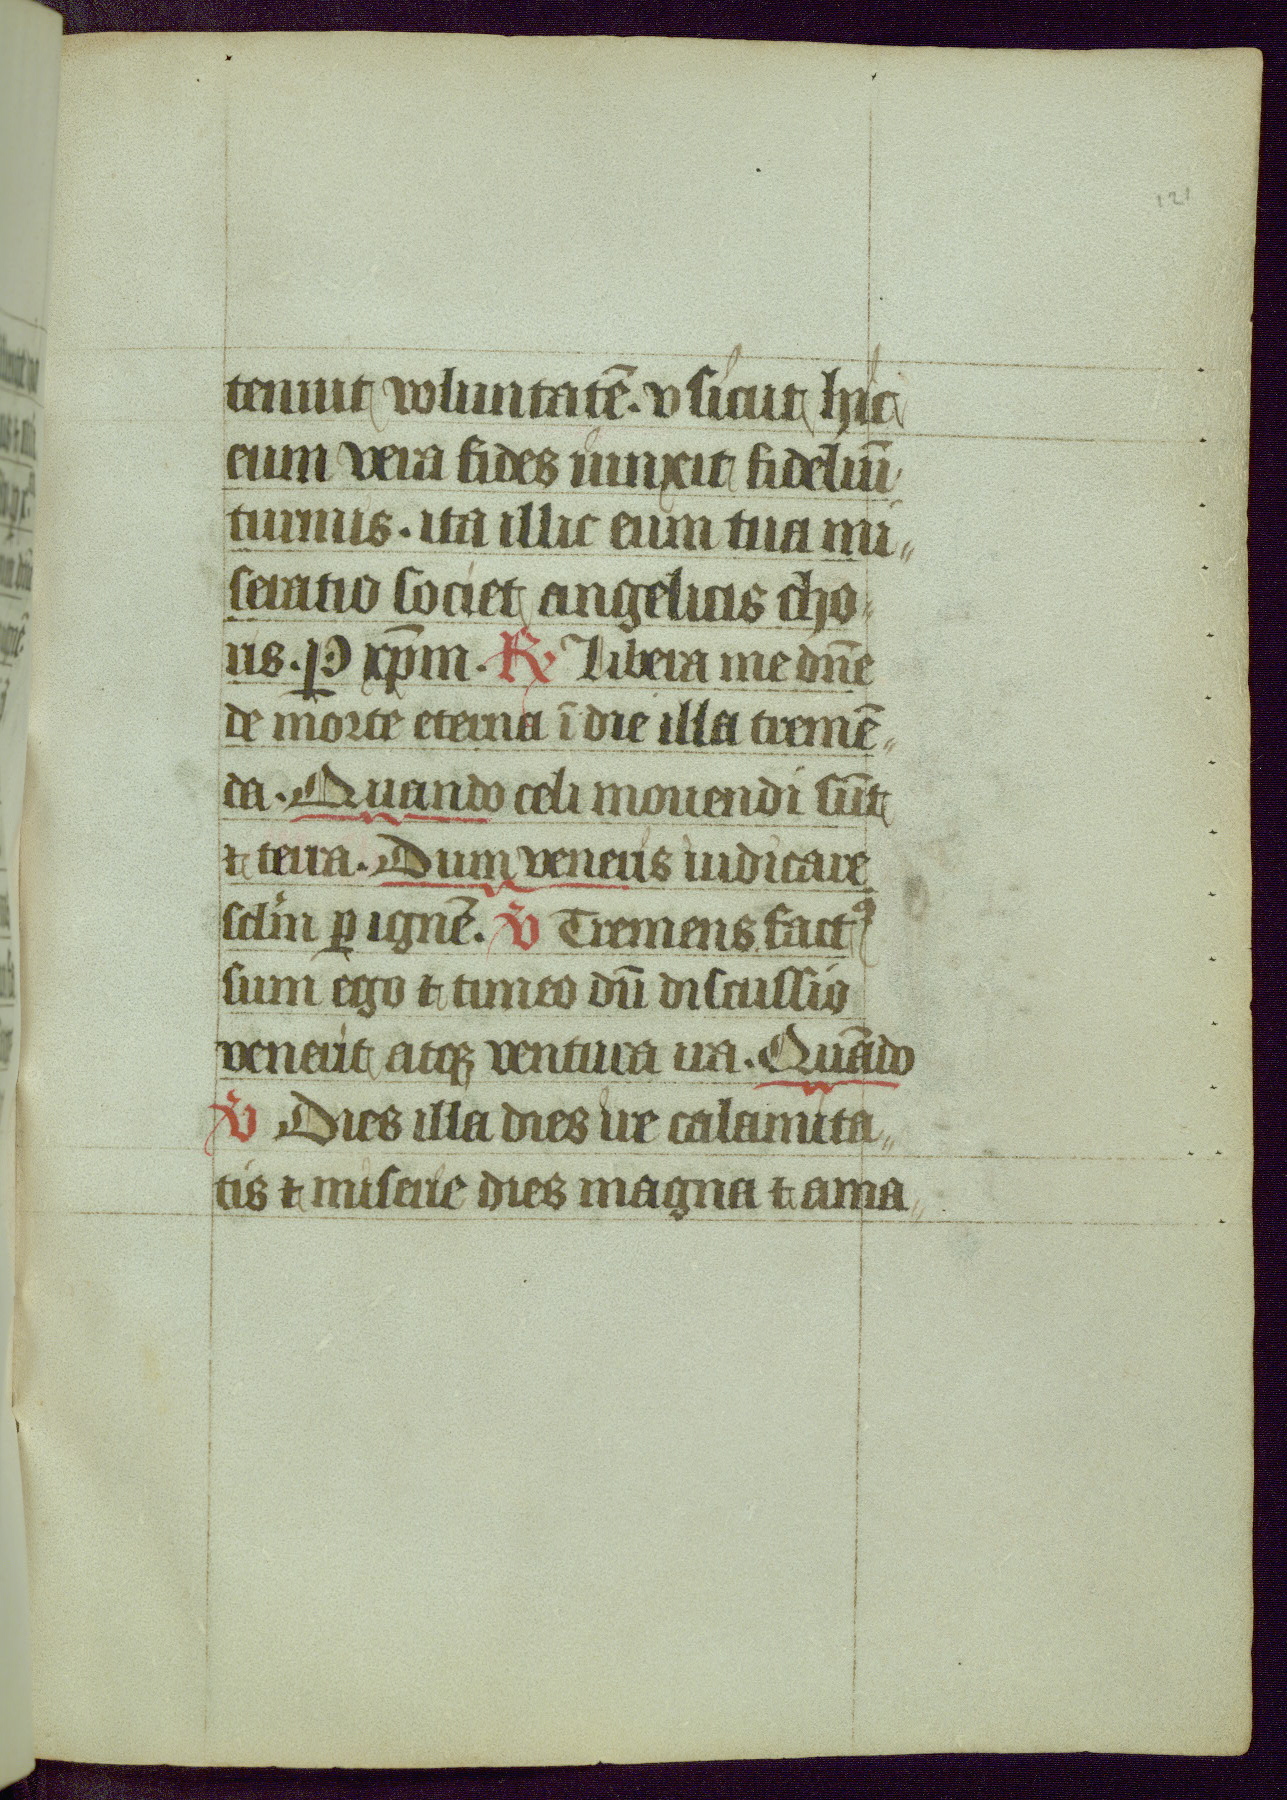 121
tenuit voluntatē. v sicut hic
eum vera fides iunxit fideliū
turmis. ita illic eum tua mi〃
seratio societ angelicis cho〃
ris. P xp̄m. R̷ Libera me dn̄e
de morte eterna ī die illa tremē〃
da. Quando celi mouendi sūt
⁊ terra. Dum veneris iudicare
sclm̄ ꝑ ignē. V̄ Tremens factꝰ
sum ego ⁊ timeo dū discussio
venerit atqꝫ ventura ira. Quādo
V̄ Dies illa dies ire calamita〃
tis ⁊ miserie dies magna ⁊ ama〃